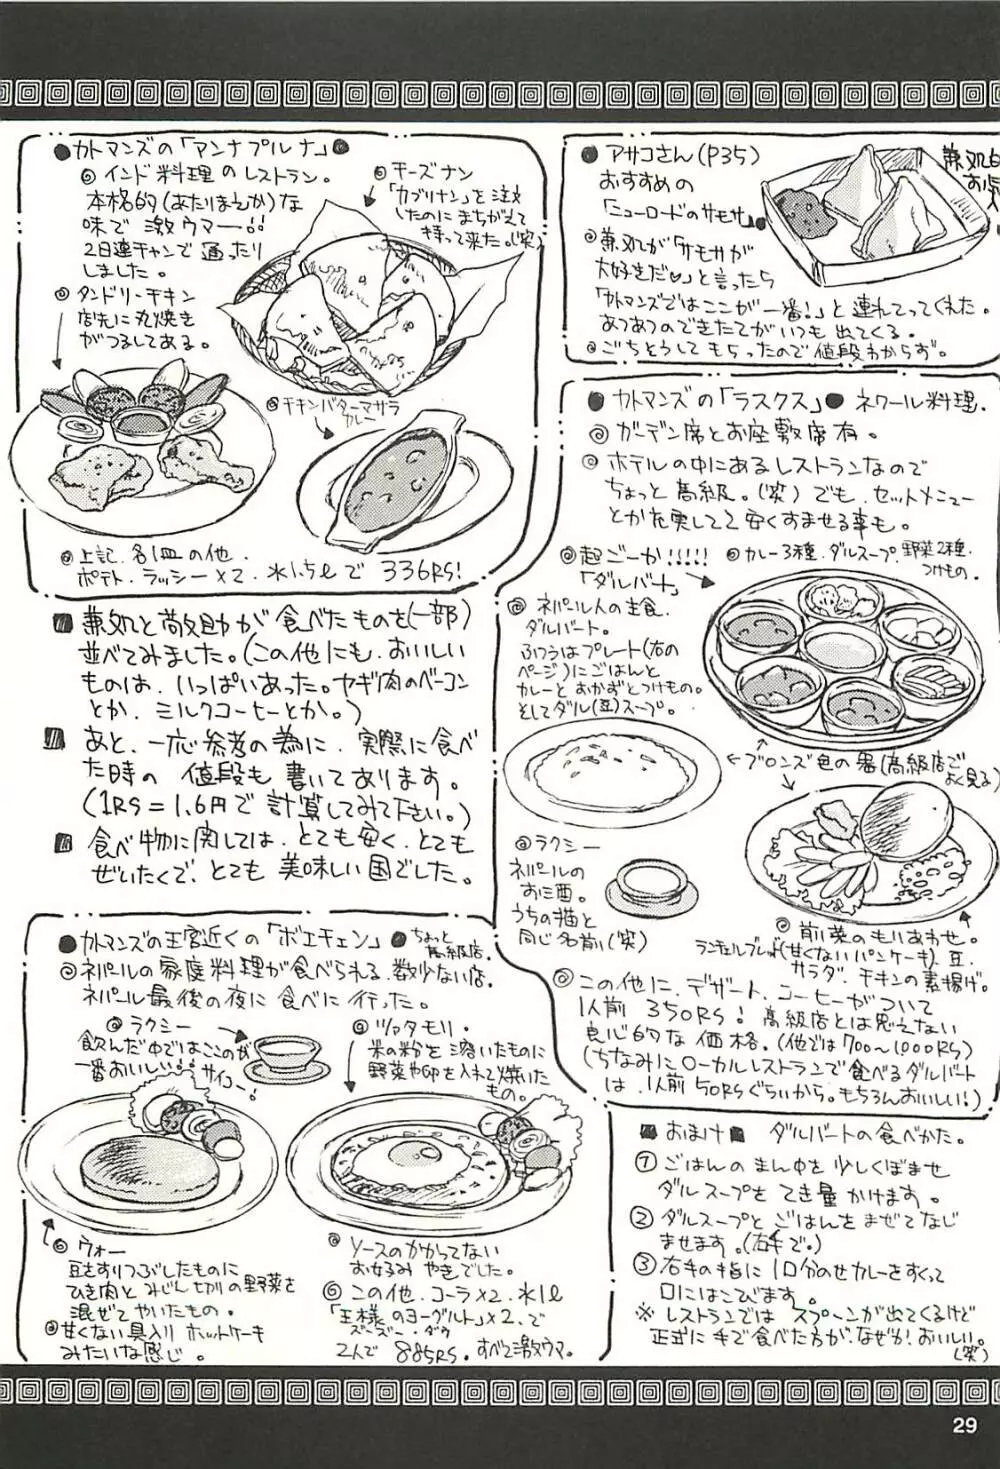 ●カトマンズの「アンナプルナ」●
◎インド料理のレストラン。
本格的(あたりまえか)な
味で激ウマー!!
2日連チャンで通ったり
しました。
◎チーズナン
「カブリナン」を注文
したのにまちがえて
持って来た。(笑)
◎タンドリーチキン
店先に丸焼き
がつるしてある。
◎チキンバターマサラ
カレー
◎上記、各1皿の他、
ポテト、ラッシー×2、水1.5ℓで 336RS!
■兼処と敬助が食べたものを(一部)
並べてみました。(この他にも、おいしい
ものは、いっぱいあった。ヤギ肉のベーコン
とか、ミルクコーヒーとか。)
■あと、一応参考の為に、実際に食べ
た時の値段も書いてあります。
(1RS=1.6円で計算してみて下さい。)
■食べ物に関しては、とても安く、とても
ぜいたくで、とても美味しい国でした。
●カトマンズの王宮近くの「ボエチェン」●ちょっと
高級店。
◎ネパールの家庭料理が食べられる、数少ない店。
ネパール最後の夜に食べに行った。
◎ラクシー
飲んだ中ではここのが
一番おいしい!! サイコー!
◎ツァタモリ・
米の粉を溶いたものに
野菜や卵を入れて焼いた
もの。
◎ウォー
豆をすりつぶしたものに
ひき肉とみじん切りの野菜を
混ぜてやいたもの。
◎甘くない具入りホットケーキ
みたいな感じ。
◎ソースのかかってない
お好み やきでした。
◎この他、コーラ×2、水1ℓ
「王様のヨーグルト」×2、で
ズーズー・ダウ
2人で 885RS。すべて激ウマ。
●アサコさん(P35)
おすすめの
「ニューロードのサモサ」●
◎兼処が「サモサが
大好きだ♡」と言ったら
「カトマンズではここが一番!」と連れてってくれた。
あつあつのできたてがいつも出てくる。
◎ごちそうしてもらったので値段わからず。
●カトマンズの「ラスクス」●ネワール料理.
◎ガーデン席とお座敷席有。
◎ホテルの中にあるレストランなので
ちょっと高級。(笑)でも、セットメニュー
とか充実してて安くすませる事も。
◎超ごーか!!!!!
「ダルバート」
◎カレー3種、ダルスープ、野菜2種、
つけもの.
◎ネパール人の主食、
ダルバート。
ふつうはプレート(右の
ページ)にごはんと
カレーとおかずとつけもの。
そしてダル(豆)スープ。
←ブロンズ色の器(高級店で
よく見る)
◎ラクシー
ネパールの
お酒。
うちの猫と
同じ名前(笑)
◎前菜のもりあわせ。
ランチェルブレッド(甘くないパンケーキ)、豆、
サラダ、チキンの素揚げ。
◎この他に、デザート、コーヒーがついて
1人前 350RS! 高級店とは思えない
良心的な価格。(他では700〜1000RS)
(ちなみにローカルレストランで食べるダルバート
は、1人前50RSぐらいから。もちろんおいしい!)
■おまけ■ ダルバートの食べかた。
①ごはんのまん中を少しくぼませ
ダルスープをてき量かけます。
②ダルスープとごはんをまぜてなじ
ませます。(右手で。)
③右手の指に1口分のせカレーをすくって
口にはこびます。
※レストランではスプーンが出てくるけど
正式に手で食べた方が、なぜか!おいしい。
(笑)
29